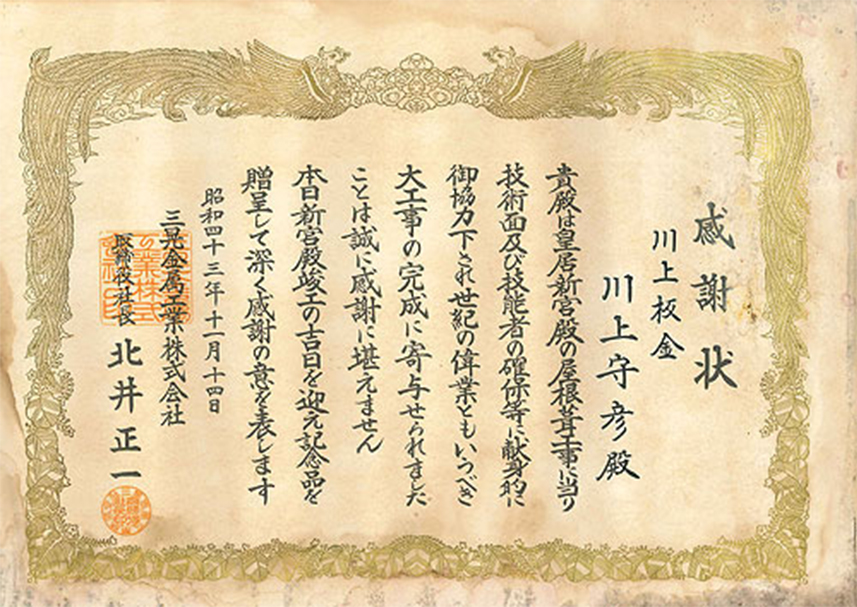 感謝状
川上板金
川上守彦殿
貴殿は皇居新宮殿の屋根葺工事に当り
技術面及び技能者の確保等に献身的に
御協力下され世紀の偉業ともいうべき
大工事の完成に寄与せられました
ことは誠に感謝に堪えません
本日新宮殿竣工の吉日を迎え記念品を
贈呈して深く感謝の意を表します
昭和四十三年十一月十四日
三晃金属工業株式会社
取締役社長 北井正一